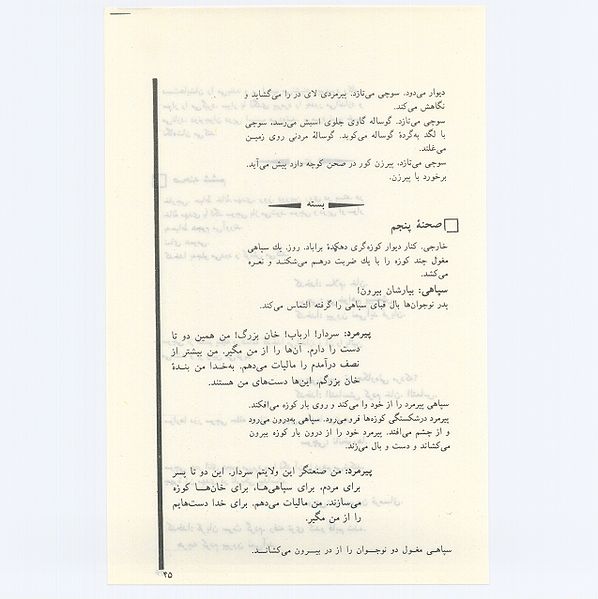 دیوار می‌دود. سوچی می‌تازد. پیرمردی لای در را می‌گشاید و
نگاهش می‌کند.
سوچی می‌تازد. گوساله گاوی جلوی اسبش می‌رسد. سوچی
با لگد به‌گردهٔ گوساله می‌کوبد. گوسالهٔ مردنی روی زمین
می‌غلتد.
سوچی می‌تازد. پیرزن کور در صحن کوچه دارد پیش می‌آید.
برخورد با پیرزن.
بسته
صحنهٔ پنجم
خارجی. کنار دیوار کوزه‌گری دهکدهٔ براباد. روز. یك سپاهی
مغول چند کوزه را با یك ضربت درهم می‌شکند و نعره
می‌کشد.
سپاهی: بیارشان بیرون!
پدر نوجوان‌ها بال قبای سپاهی را گرفته التماس می‌کند.
پیرمرد: سردار! ارباب! خان بزرگ! من همین دو تا
دست را دارم. آن‌ها را از من مگیر. من بیشتر از
نصف درآمدم را مالیات می‌دهم. به‌خدا من بندهٔ
خان بزرگم. این‌ها دست‌های من هستند.
سپاهی پیرمرد را از خود وا می‌کند و روی بار کوزه می‌افکند.
پیرمرد درشکستگی کوزه‌ها فرو می‌رود. سپاهی به‌درون می‌رود
و از چشم می‌افتد. پیرمرد خود را از درون بار کوزه بیرون
می‌کشاند و دست و بال می‌زند.
پیرمرد: من صنعتگر این ولایتم سردار. این دو تا پسر
برای مردم، برای سپاهی‌ها، برای خان‌ها کوزه
می‌سازند. من مالیات می‌دهم. برای خدا دست‌هایم
را از من مگیر.
سپاهی مغول دو نوجوان را از در بیرون می‌کشاند.
۳۵